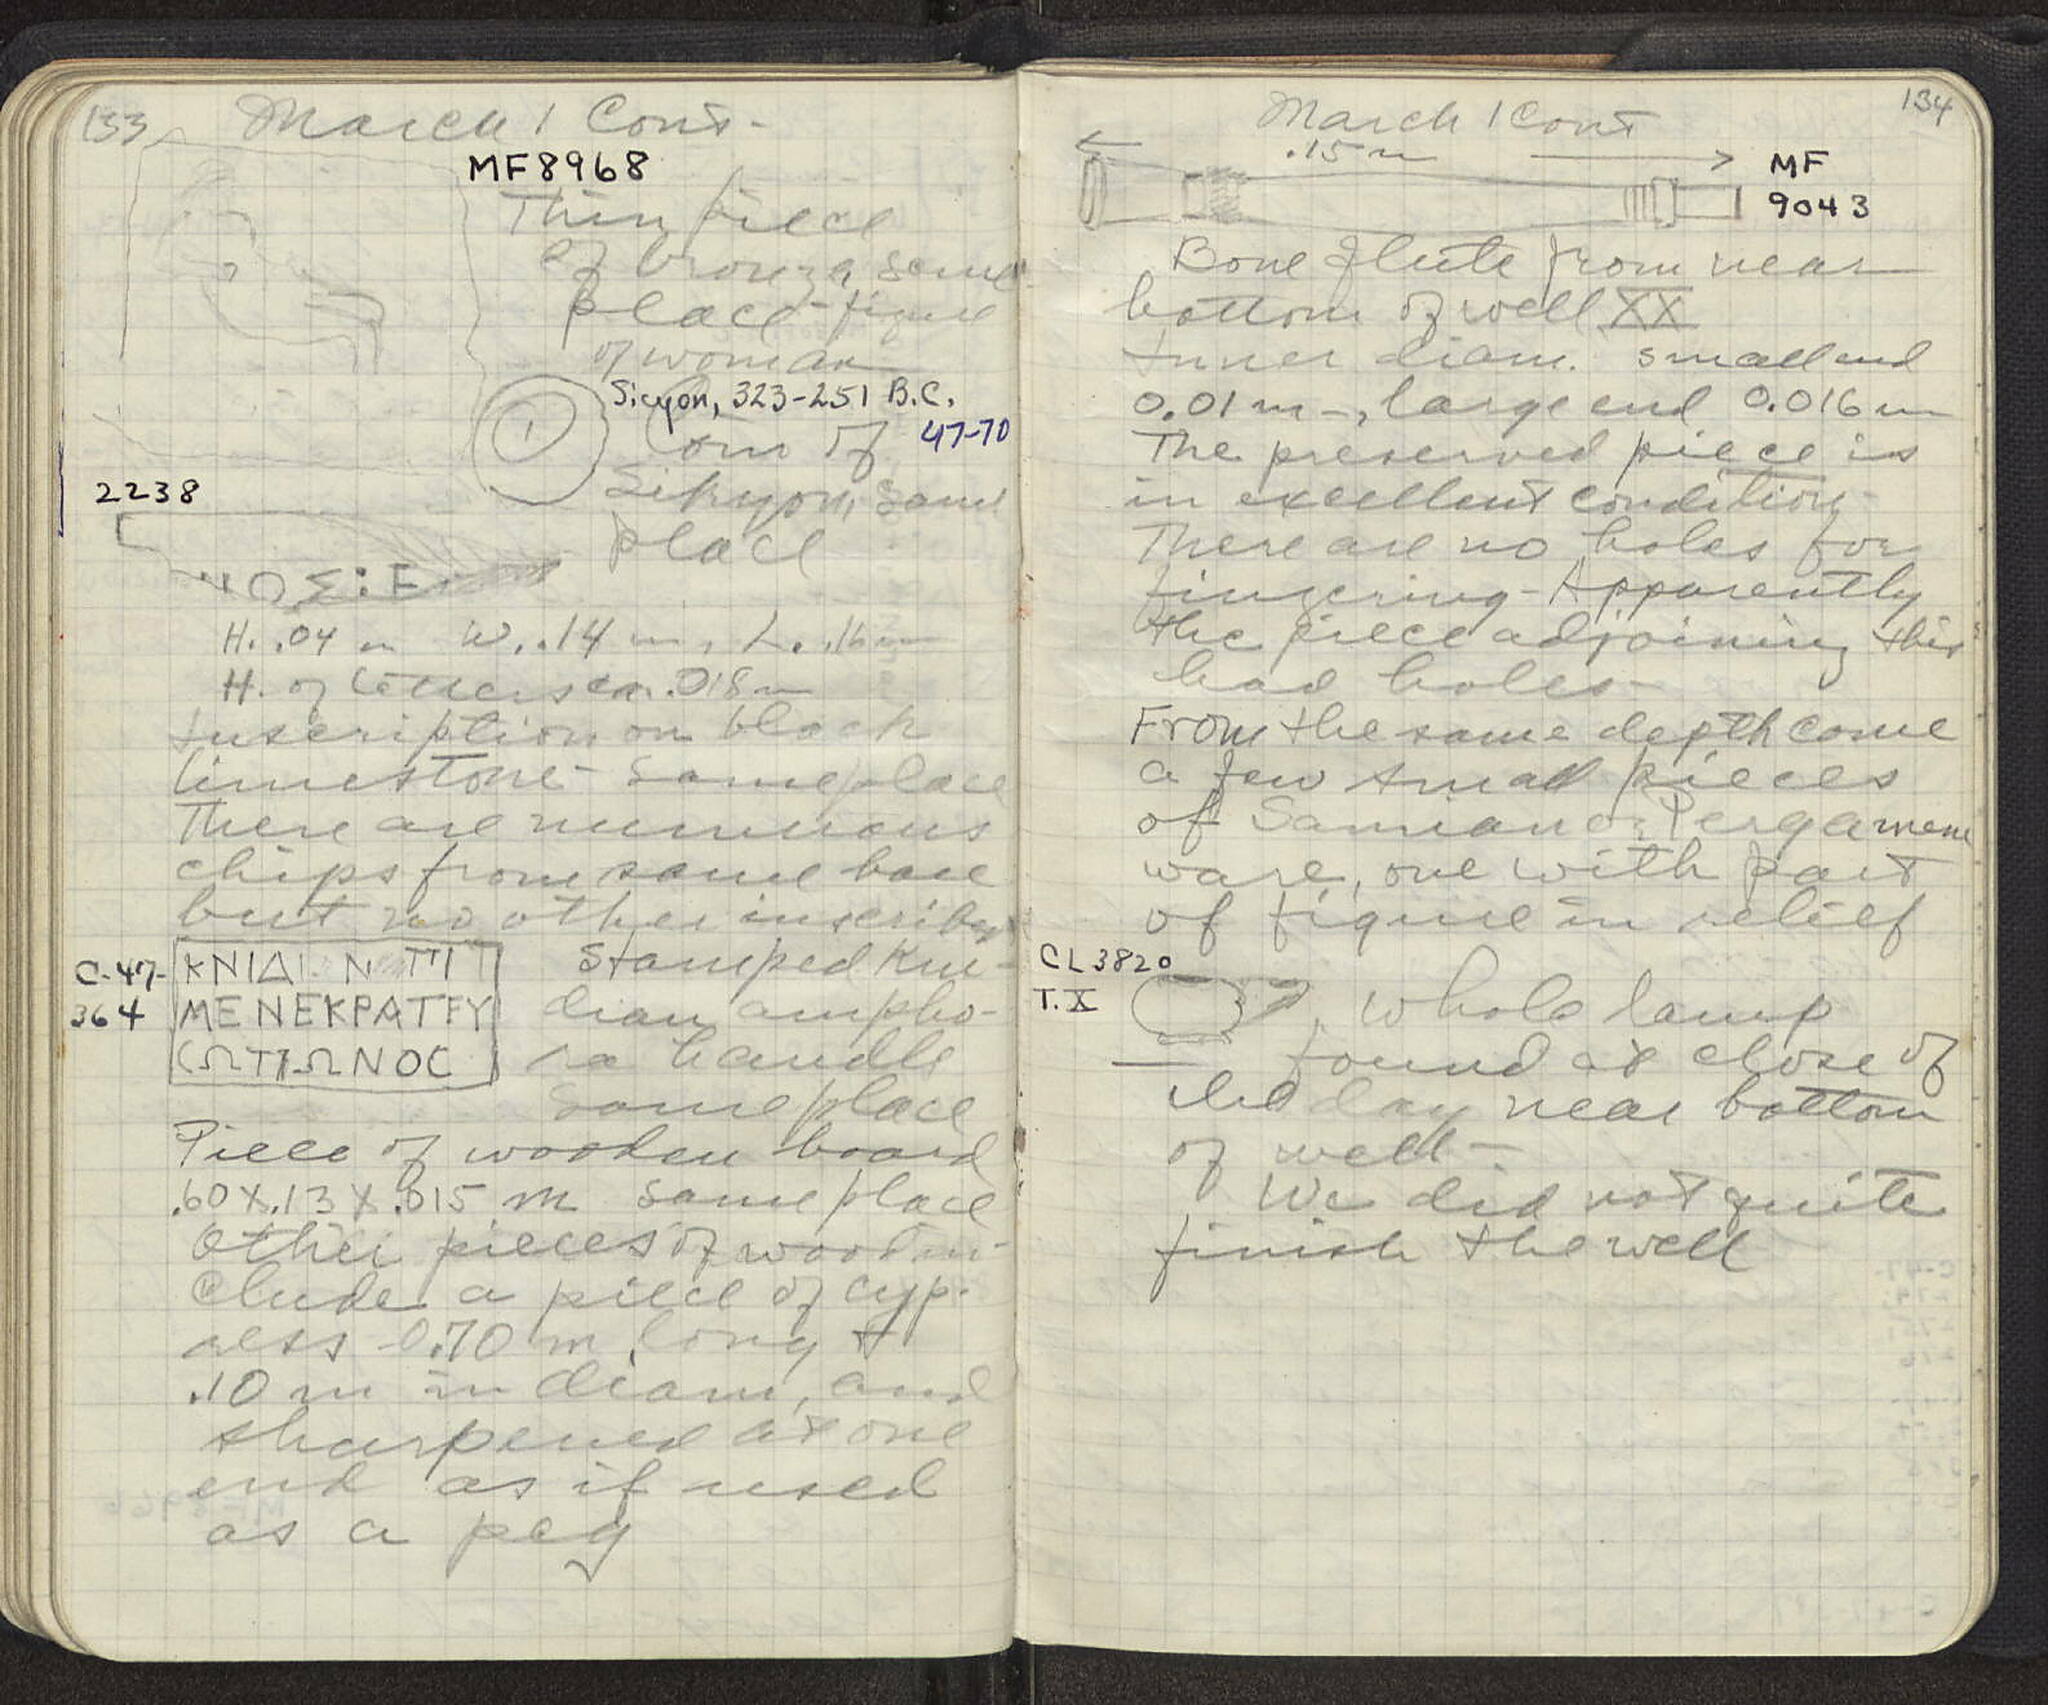 133 March 1 Cont-
MF8968
Thin piece
of bronze, same
place - figure
of woman
Sicyon, 323-251 B.C.
47-70
Coin of
Sikyon, same
place
2238
ΟΣ:Ε
H. .04 m W. .14 m, L. .16 m
H. of letters ca. .018 m
Inscription on black
limestone - same place
There are numerous
chips from same base
but no other inscribed
C-47-
364
ΚΝΙΔΙ Ν ΠΙ
ΜΕΝΕΚΡΑΤΕΥ
CΩΤΙΩΝΟC
Stamped Kni-
dian ampho-
ra handle
same place
Piece of wooden board
.60 X .13 X .015 m same place
Other pieces of wood in-
clude a piece of cyp-
ress 0.70 m long +
.10 m in diam, and
sharpened at one
end as if used
as a peg
134
March 1 Cont
.15 m
MF
9043
Bone flute from near
bottom of well XX
Inner diam. small end
0.01 m -, large end 0.016 m
The preserved piece is
in excellent condition-
There are no holes for
fingering - Apparently
the piece adjoining this
had holes-
From the same depth come
a few small pieces
of Samian or Pergamene
ware, one with part
of figure in relief
CL 3820
T. X
Whole lamp
found at close of
day near bottom
of well -
We did not quite
finish the well